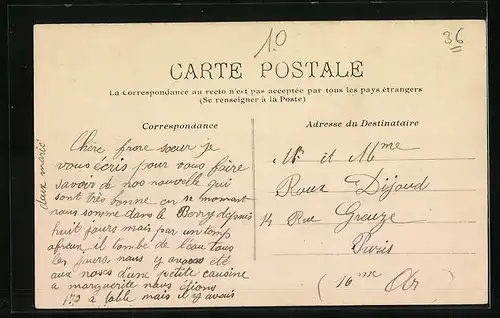 10
36
CARTE POSTALE
La Correspondance au recto n'est pas acceptée par tous les pays étrangers
(Se renseigner à la Poste)
Correspondance
Adresse du Destinataire
Chère frore soeur je
vous écris pour vous faire
savoir de nos nouvelle qui
sont très bonne en se moment
nous somme dans le Berry depuis
huit jours mais par un temp
afreux il tombe de l'eau tous
les jours, nous y avons été
aux noses d'une petite causine
a marguerite nous étions
170 a table mais il y avais
deux marié
Mr et Mme
Roux Dijoud
14 Rue Greuze
Paris
(16me